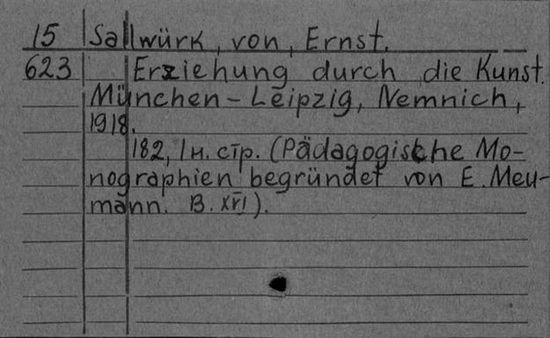 15 Sallwürk, von, Ernst.
623 Erziehung durch die Kunst.
München-Leipzig, Nemnich,
1918.
182, 1 н. стр. (Pädagogische Mo-
nographien begründet von E. Meu-
mann. B. XVI).